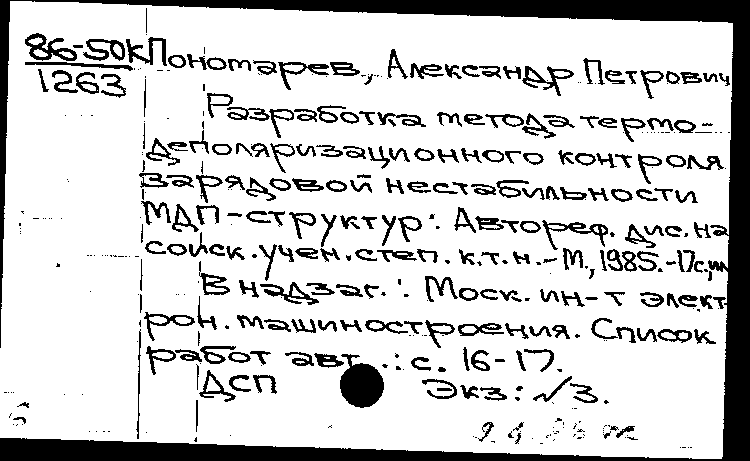 86-50к
1263
Пономарев, Александр Петрович
Разработка метода термо-
деполяризационного контроля
зарядовой нестабильности
МДП-структур: Автореф. дис. на
соиск. учен. степ. к.т.н. - М., 1985. - 17с., ил
В надзаг.: Моск. ин-т элект
рон. машиностроения. Список
работ авт.: с. 16-17.
ДСП Экз: √3.